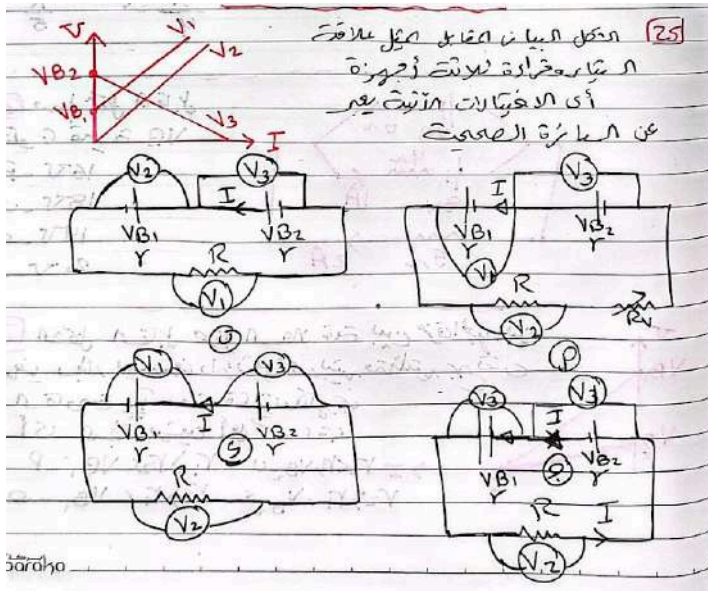 25 الشكل البيانى المقابل يمثل علاقة
التيار وقراءة ثلاثة أجهزة
أى الاختيارات الآتية يعبر
عن الدائرة الصحيحة
V V1 V2
VB2
VB1
V3 I
V2 V3 I
VB1 r VB2 r
R
V1
V3 I
VB1 r VB2 r
V1 R
V2 Rv
V1 V3
I
VB1 r VB2 r
R
V2
V3 V3
I
VB1 r VB2 r
R I
V2
baraka